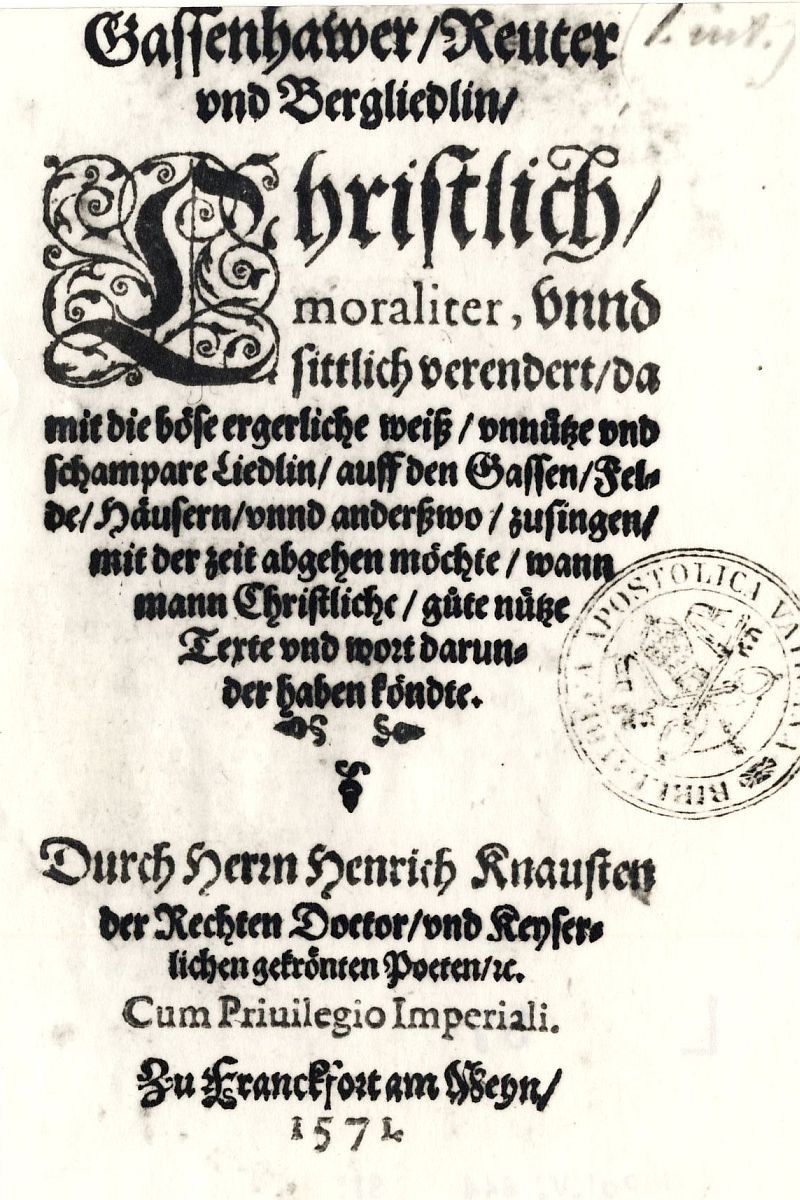 Gassenhawer/Reuter
vnd Bergliedlin/
Christlich/
moraliter, vnnd
sittlich verendert/da
mit die böse ergerliche weiß / vnnütze vnd
schampare Liedlin/ auff den Gassen/Fel-
de/Häusern/vnnd anderßwo / zusingen/
mit der zeit abgehen möchte / wann
mann Christliche / gůte nütze
Texte vnd wort darun-
der haben köndte.
BIBLIOTHECA APOSTOLICA VATICANA
Durch Herrn Henrich Knausten
der Rechten Doctor/vnd Keyser-
lichen gekrönten Poeten/ꝛc.
Cum Priuilegio Imperiali.
Zu Franckfort am Meyn/
1571